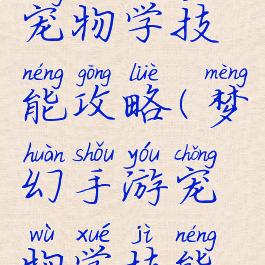 宠物学技
néng gōng lüè mèng
能攻略(梦
huàn shǒu yóu chǒng
幻手游宠
wù xué jì néng
物学技能